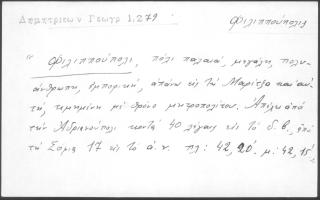 Δημητριέων Γεωγρ 1,279
Φιλιππούπολις
"Φιλιππούπολι, πόλι παλαιά, μεγάλη, πολυ-
άνθρωπη, εμπορική, απάνω εις τη Μαρίτζα και αυ-
τή, τιμημένη με θρόνο μητροπολίτου. Απέχει από
την Αδριανούπολι κοντά 40 λέγαις εις το δ.β., από
τη Σόφια 17 εις το α.ν. πλ: 42,20. μ: 42,15'